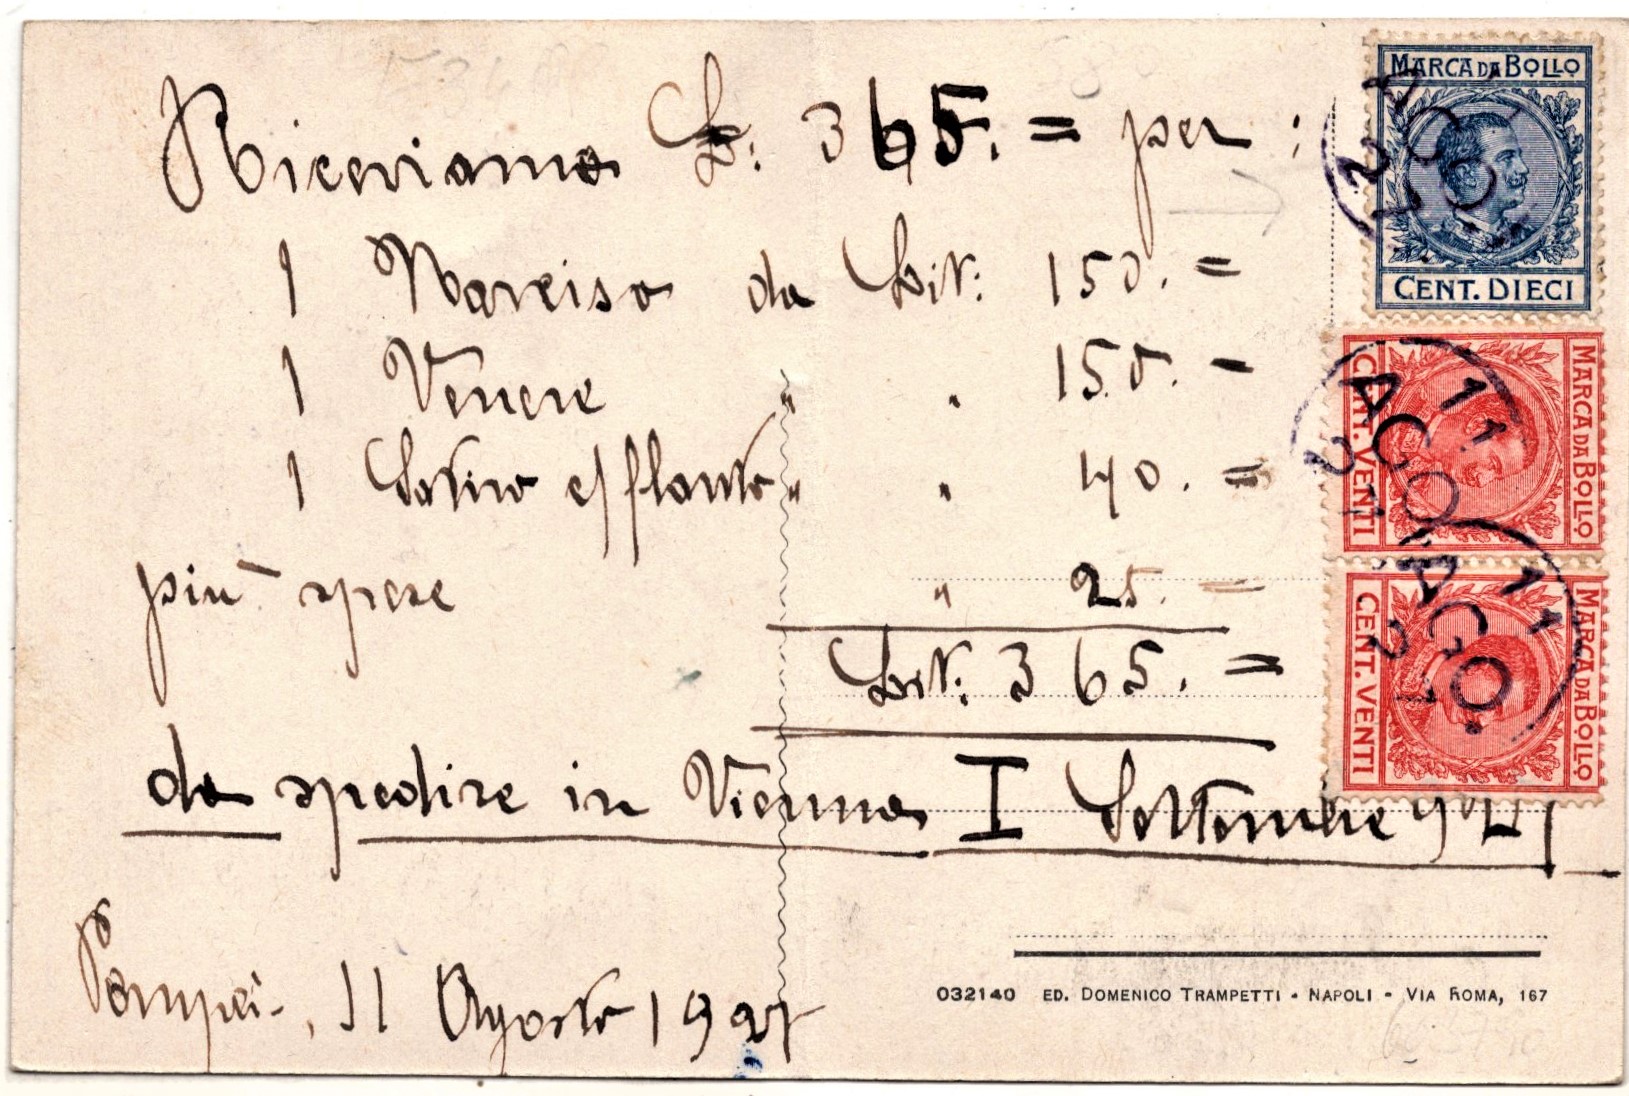 Riceviamo £: 365. = per :
1 Narciso da Lit: 150. =
1 Venere " " 150. =
1 Satiro c/ flauto " " 40. =
più spese " 25. =
Lit: 365. =
da spedire in Vienna I Settembre 927
Pompei, 11 Agosto 1927
MARCA DA BOLLO
CENT. DIECI
MARCA DA BOLLO
CENT. VENTI
11 AGO. 27
MARCA DA BOLLO
CENT. VENTI
11 AGO. 27
032140 ED. DOMENICO TRAMPETTI - NAPOLI - VIA ROMA, 167